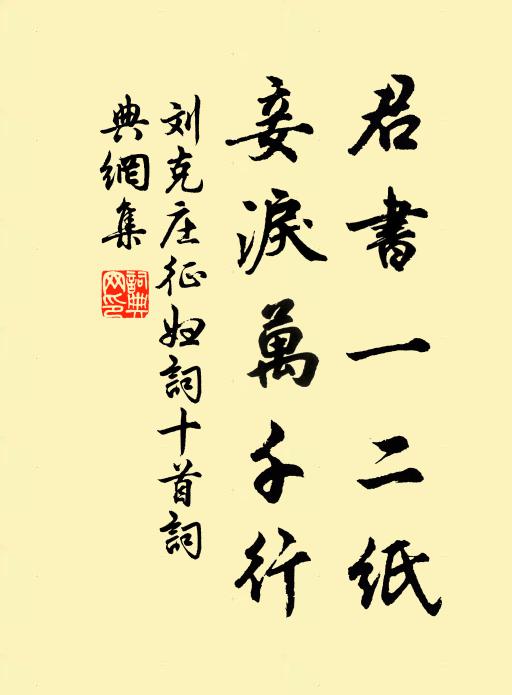 君書一二紙
妾淚萬千行
刘克庄征妇詞十首詞
典網集
詞典网印